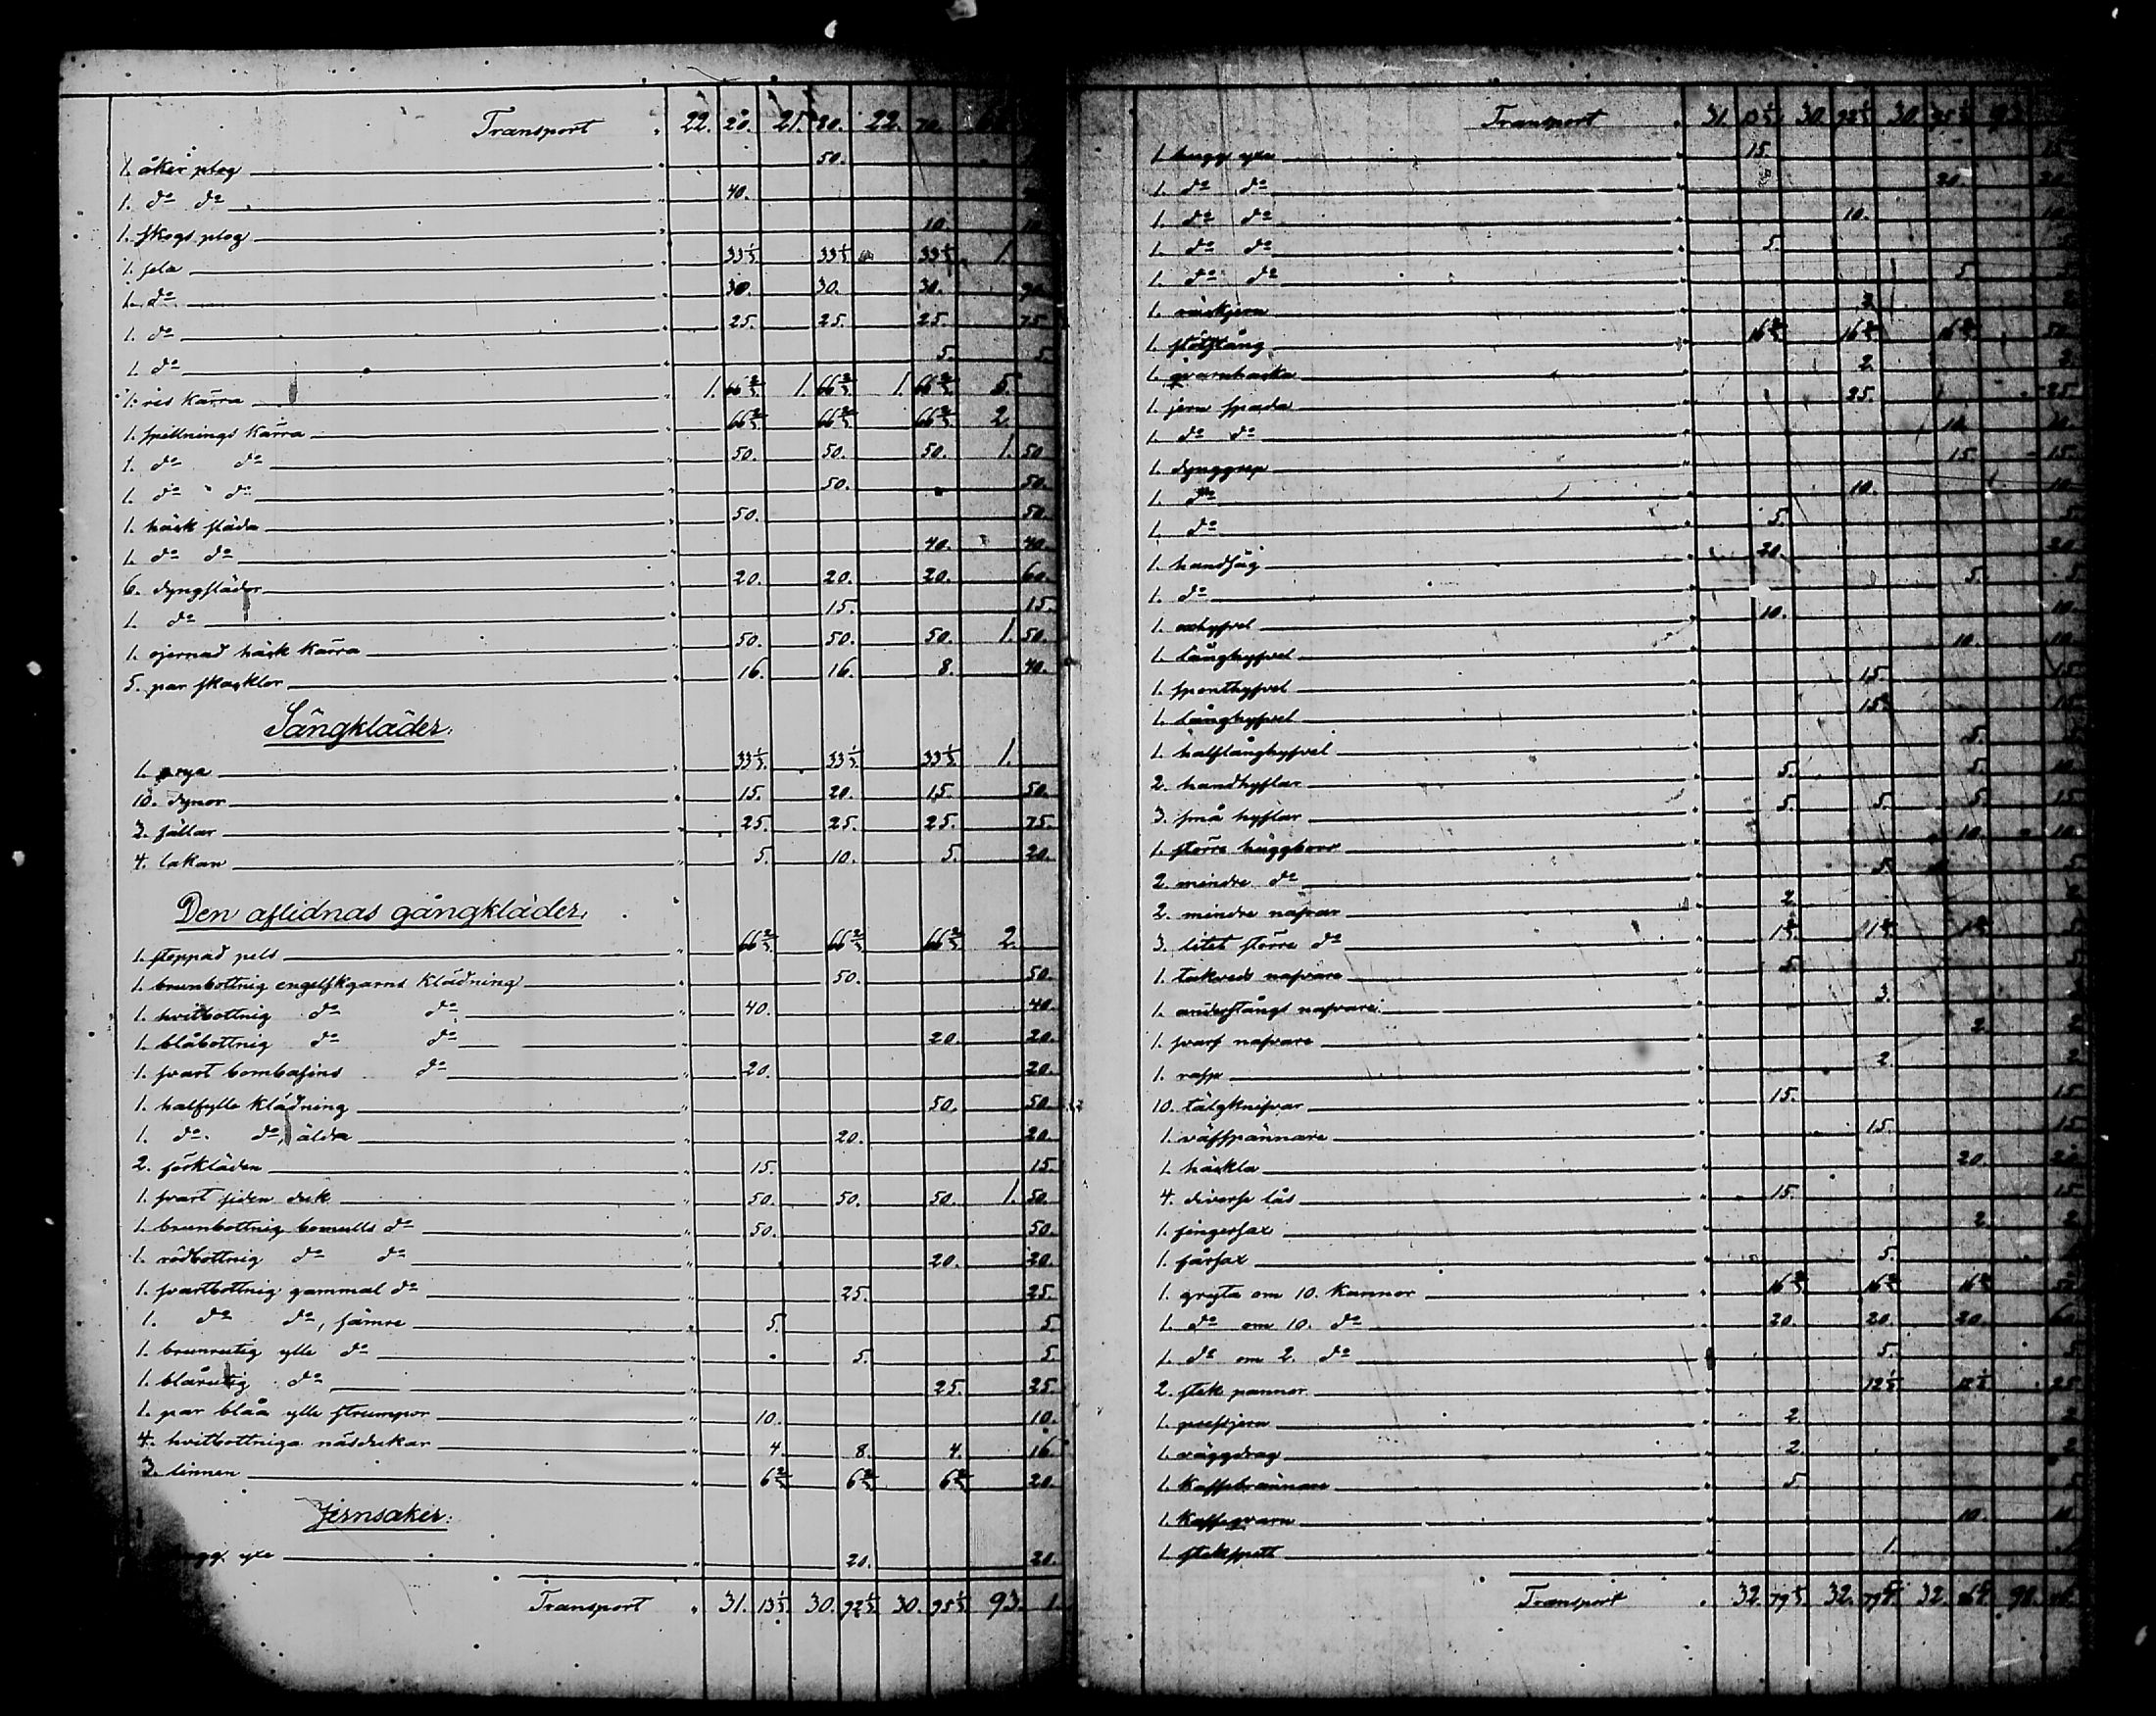 Transport " 22. 20. 21. 80. 22. 70.
1. åker plog " 50.
1. do do " 40.
1. skogs plog " 10. 10
1. sela " 33 1/3. 33 1/3 33 1/3. 1.
1. do " 30. 30. 30. 90
1. do " 25. 25. 25. 75
1. do " 5. 5.
1. res kärra 1. 66 2/3. 1. 66 2/3. 1. 66 2/3. 5.
1. spillnings kärra " 66 2/3. 66 2/3. 66 2/3. 2.
1. do do " 50. 50. 50. 1. 50
1. do do " 50. 50.
1. häck släda " 50. 50.
1. do do " 40. 40.
6. dyngslädor " 20. 20. 20. 60.
1. do " 15. 15.
1. ojernad häck kärra " 50. 50. 50. 1. 50.
5. par skacklor " 16. 16. 8. 40.
Sängkläder.
1. rya " 33 1/3. 33 1/3. 33 1/3. 1.
10. dynor " 15. 20. 15. 50.
3. fällar " 25. 25. 25. 75.
4. lakan " 5. 10. 5. 20.
Den aflidnas gångkläder.
1. stoppad pels " 66 2/3. 66 2/3. 66 2/3. 2.
1. brunbottnig engelskgarns klädning " 50. 50.
1. hvitbottnig do do " 40. 40.
1. blåbottnig do do " 20. 20.
1. svart bombasins do " 20. 20.
1. halfylle klädning " 50. 50.
1. do. do, äldre " 20. 20.
2. förkläden " 15. 15.
1. svart siden duk " 50. 50. 50. 1. 50.
1. brunbottnig bomulls do " 50. 50.
1. rödbottnig do do " 20. 20.
1. svartbottnig gammal do " 25. 25.
1. do do, sämre " 5. 5.
1. brunrutig ylle do " 5. 5.
1. blårutig do " 25. 25.
1. par blåa ylle strumpor " 10. 10.
4. hvitbottniga näsdukar " 4. 8. 4. 16.
3. linnen " 6 2/3 6 2/3 6 2/3 20.
Jernsaker:
yxe " 20. 20.
Transport " 31. 13 1/3. 30. 92 1/3. 30. 95 1/3 93. 1.
Transport " 31. 13 1/3 30. 92 1/3 30. 95 1/3 93.
1. hugg yxe " 15. 15
1. do do " 20. 20
1. do do " 10. 10
1. do do " 5.
1. do do " 5.
1. räckjern " 2
1. stötstång " 16 2/3 16 2/3 16 2/3 50
1. qvarnhacka " 2. 2
1. jern spada " 25. 25
1. do do " 10. 10.
1. dynggrep " 15. 15.
1. do " 10. 10
1. do " 5. 5
1. handsåg " 20. 20
1. do " 5. 5
1. oxhyfvel " 10. 10
1. långhyfvel " 10. 10
1. sponthyfvel " 15. 15
1. långhyfvel " 15.
1. halflånghyfvel " 5.
2. handhyflar " 5. 5. 10
3. små hyflar " 5. 5. 5. 15
1. större huggborr " 10. 10.
2. mindre do " 5. 5
2. mindre nafvar " 2. 2
3. litet större do " 1 2/3. 1 2/3. 1 2/3. 5
1. takveds nafvare " 5
1. nafvare " 3.
1. svarf nafvare " 2. 2
1. rasp " 2. 2
10. täljknifvar " 15. 15
1. väfspännare " 15. 15
1. häckla " 20. 20
4. diverse lås " 15. 15
1. fingersax " 2. 2
1. fårsax " 5.
1. gryta om 10. kannor " 16 2/3 16 2/3 16 2/3 50
1. do om 10. do " 20. 20. 20. 60
1. do om 2. do " 5. 5
2. stek pannor " 12 1/2 12 1/2 25
1. pressjern " 2. 2
1. väggdrag " 2. 2
1. kaffebrännare " 5. 5
1. kaffeqvarn " 10. 10
1. stekspett " 1. 1
Transport " 32. 32. 32. 98.